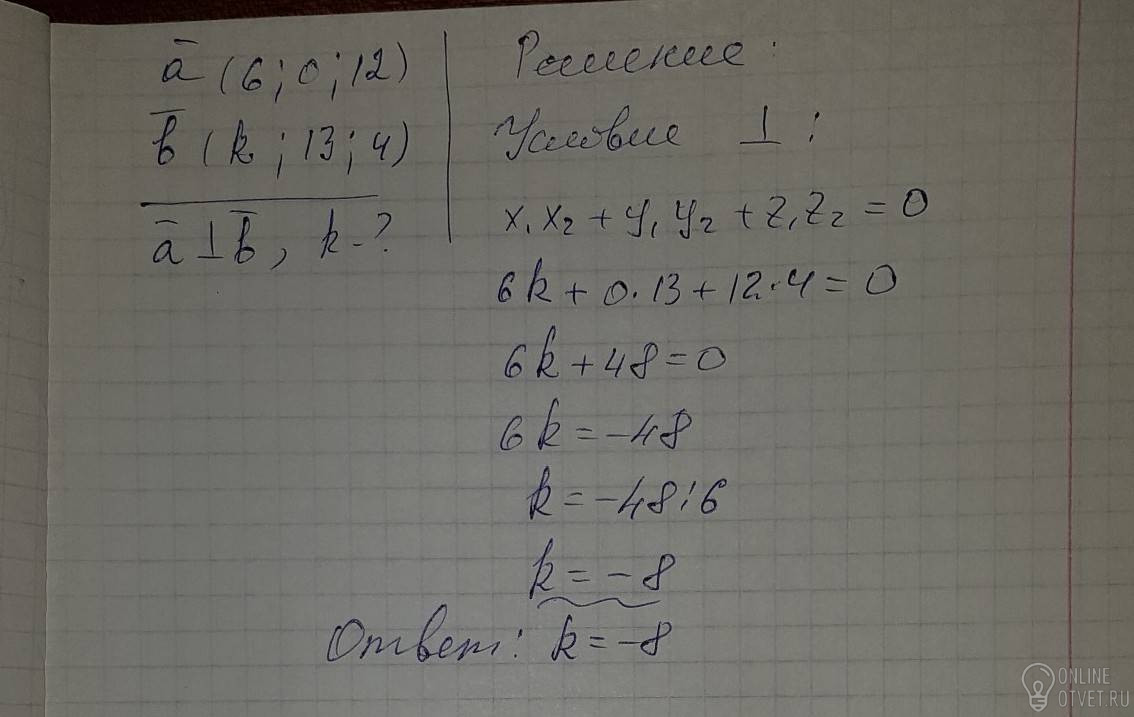 a̅ (6; 0; 12)
b̅ (k; 13; 4)
a̅ ⊥ b̅, k - ?
Решение:
Условие ⊥:
x₁x₂ + y₁y₂ + z₁z₂ = 0
6k + 0·13 + 12·4 = 0
6k + 48 = 0
6k = -48
k = -48:6
k = -8
Ответ: k = -8
ONLINE
OTVET.RU